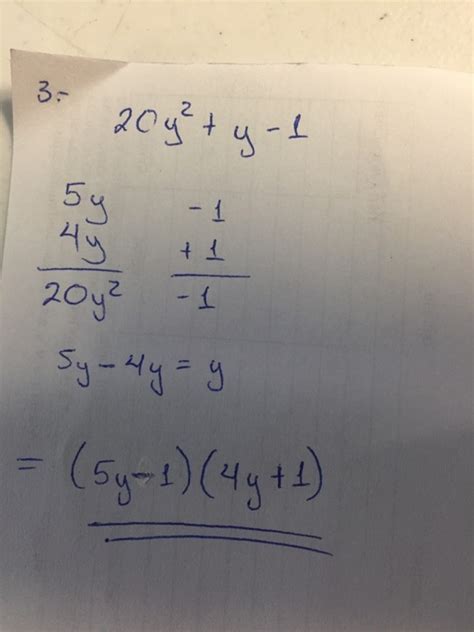 3.-
20y² + y - 1
5y - 1
4y + 1
20y² - 1
5y - 4y = y
= (5y-1)(4y+1)